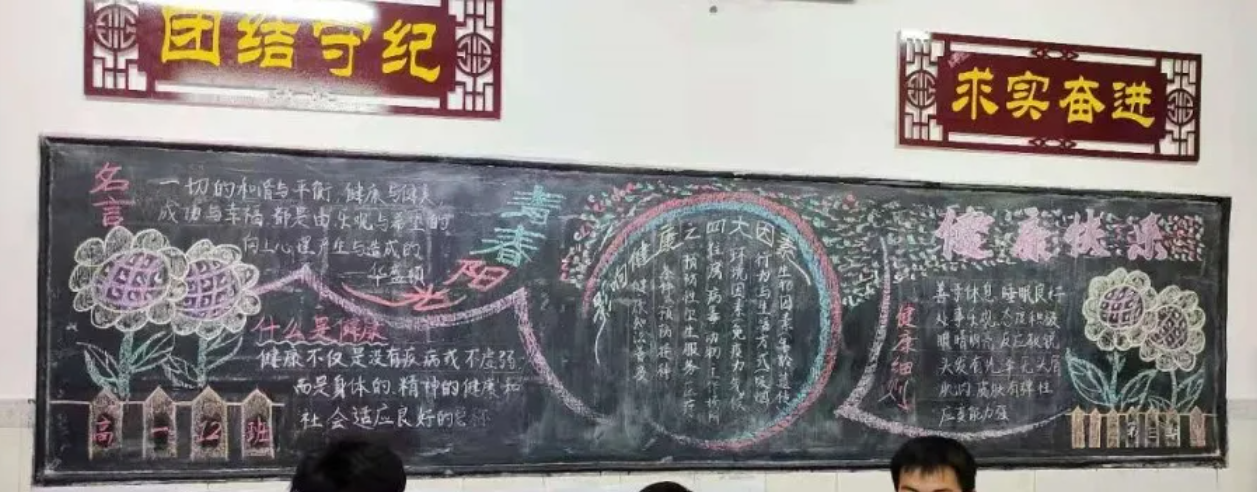 团结守纪
求实奋进
名言
一切的和谐与平衡,健康与健美
成功与幸福 都是由乐观与希望的
向上心理产生与造成的
——华盛顿
青春
阳光
什么是健康
健康不仅是没有疾病或不虚弱
而是身体的、精神的健康和
社会适应良好的总称
高一12班
影响健康之四大因素
生物因素:年龄、遗传
行为与生活方式:吸烟
环境因素:免疫力、气候
预防性卫生服务、医疗
健康快乐
健康细则
善于休息 睡眠良好
处事乐观 态度积极
眼睛明亮 反应敏锐
头发有光泽 无头屑
肌肉、皮肤有弹性
应变能力强